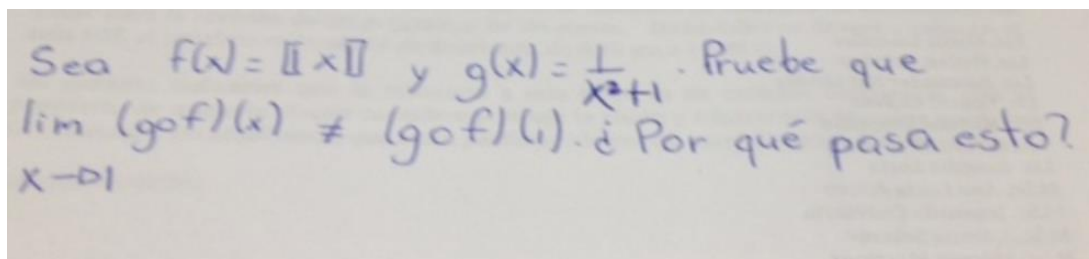 Sea f(x) = ⟦x⟧ y g(x) = 1/(x²+1). Pruebe que
lim (gof)(x) ≠ (gof)(1). ¿Por qué pasa esto?
x→1